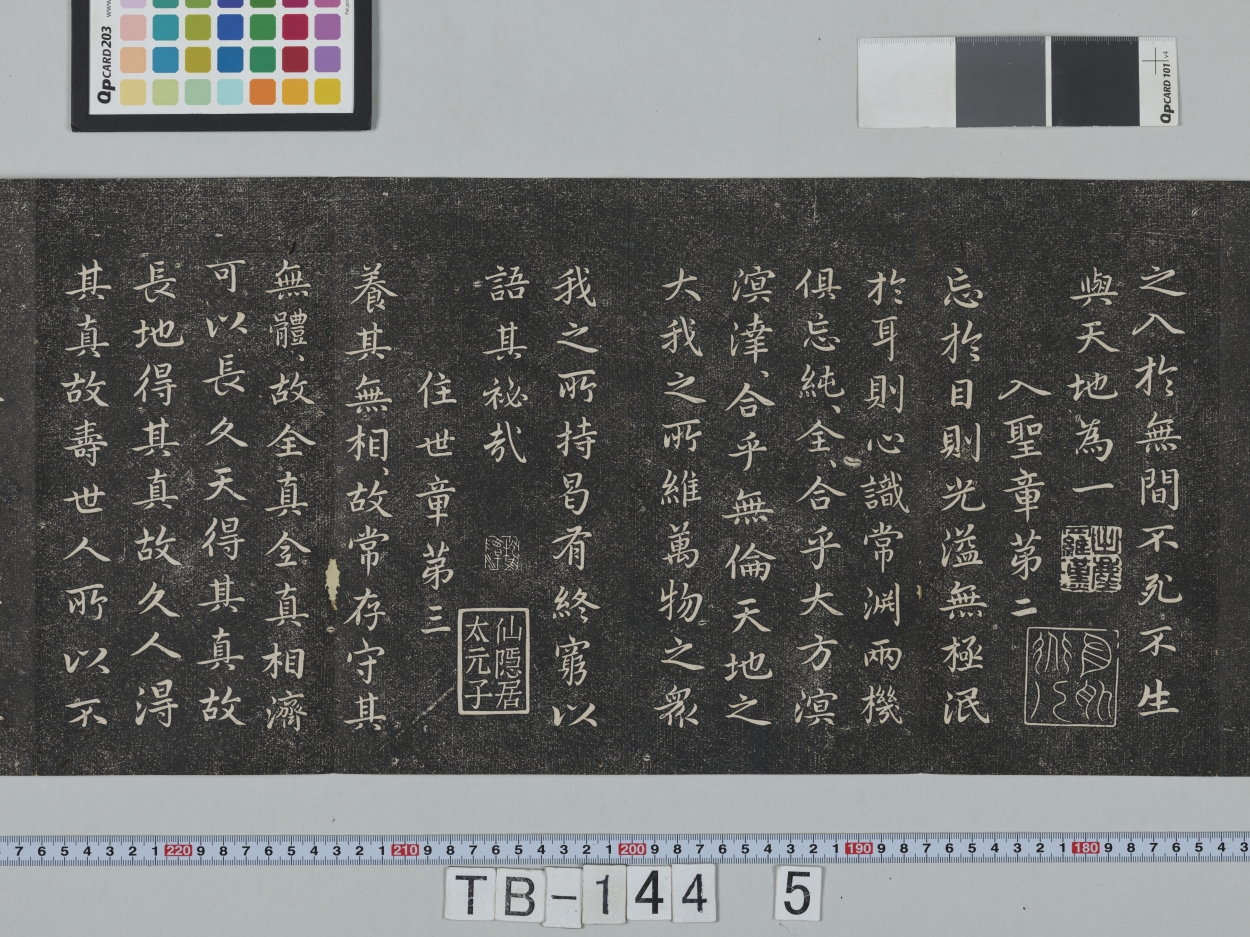 之入於無間不死不生
與天地為一
入聖章第二
忘於目則光溢無極泯
於耳則心識常渊兩機
俱忘純、全、合乎大方溟
溟涬、合乎無倫天地之
大我之所維萬物之衆
我之所持曷有終窮以
語其祕㢤
仙隱居
太元子
住世章第三
養其無相、故常存守其
無體、故全真全真相濟
可以長久天得其真故
長地得其真故久人得
其真故壽世人所以不
QpCARD 203
QpCARD 101 v4
7 6 5 4 3 2 1 220 9 8 7 6 5 4 3 2 1 210 9 8 7 6 5 4 3 2 1 200 9 8 7 6 5 4 3 2 1 190 9 8 7 6 5 4 3 2 1 180 9 8 7 6 5 4 3
TB-144 5